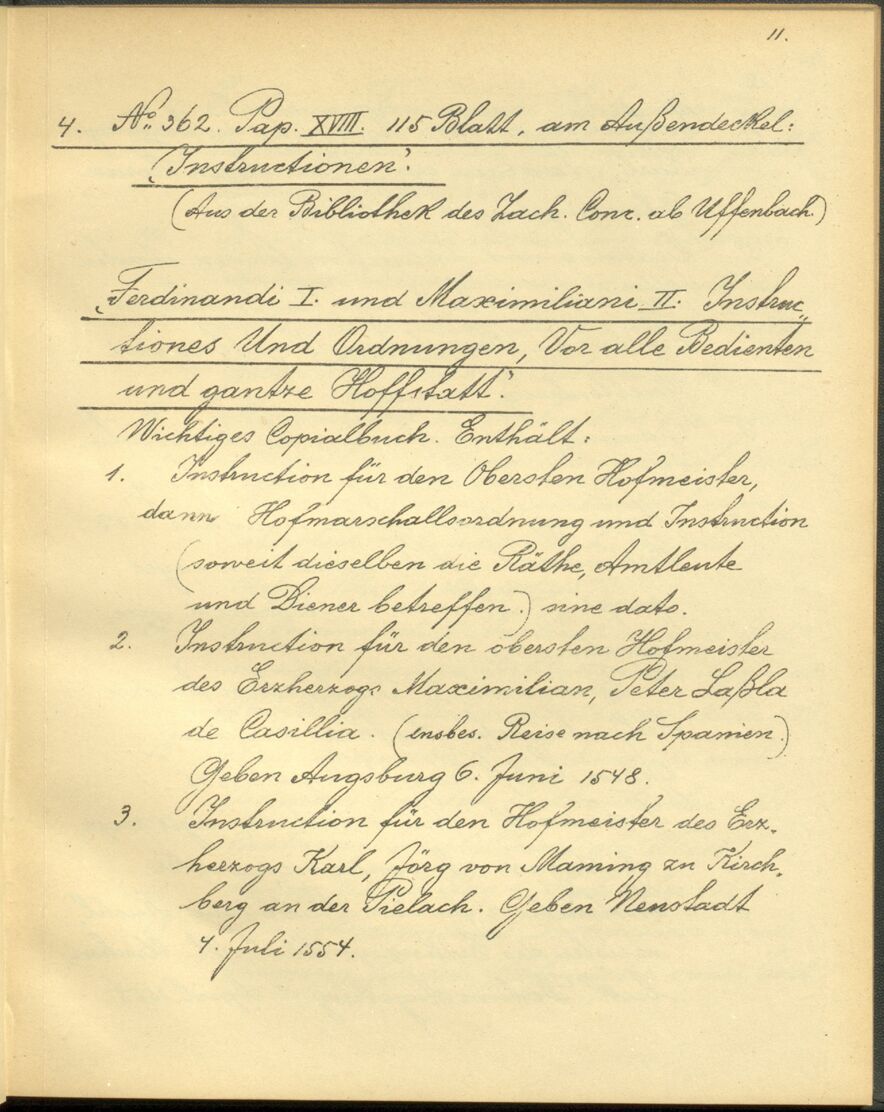 11.
4. No. 362. Pap. XVIII. 115 Blatt, am Außendeckel:
"Instructionen".
(Aus der Bibliothek des Zach. Conr. ab Uffenbach.)
"Ferdinandi I. und Maximiliani II. Instruc-
tiones Und Ordnungen, Vor alle Bedienten
und gantze Hoffstatt".
Wichtiges Copialbuch. Enthält:
1. Instruction für den Obersten Hofmeister,
dann Hofmarschallsordnung und Instruction
(soweit dieselben die Räthe, Amtleute
und Diener betreffen.) sine dato.
2. Instruction für den obersten Hofmeister
des Erzherzogs Maximilian, Peter Laßla
de Casillia. (insbes. Reise nach Spanien.)
Geben Augsburg 6. Juni 1548.
3. Instruction für den Hofmeister des Erz-
herzogs Karl, Jörg von Maming zu Kirch-
berg an der Pielach. Geben Neustadt
4. Juli 1554.